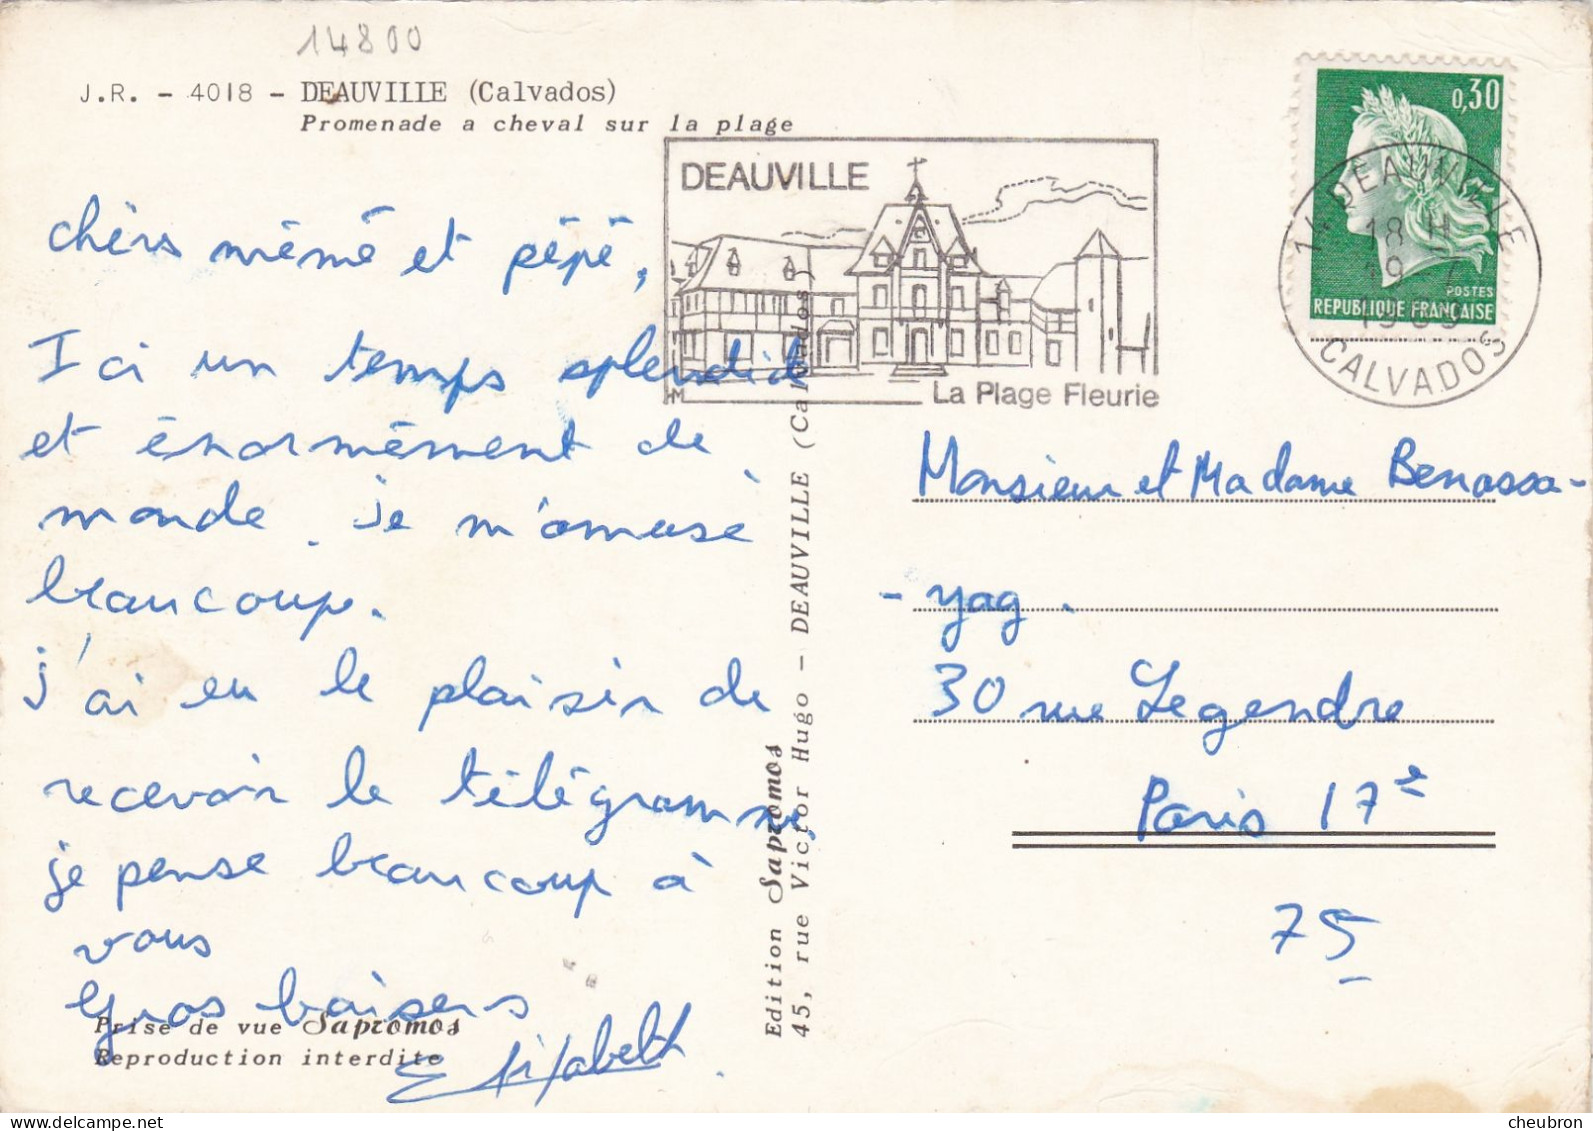 14800
J.R. - 4018 - DEAUVILLE (Calvados)
Promenade a cheval sur la plage
DEAUVILLE
La Plage Fleurie
HM
0,30
POSTES
REPUBLIQUE FRANÇAISE
14 DEAUVILLE
18 H
19
1969
CALVADOS
chèrs mémé et pépé,
Ici un temps splendide
et énormément de
monde. je m'amuse
beaucoup.
j'ai eu le plaisir de
recevoir le télégramme,
je pense beaucoup à
vous
Gros baisers
Elisabeth
Prise de vue Sapromos
Reproduction interdite
Edition Sapromos
45, rue Victor Hugo - DEAUVILLE (Calvados)
Monsieur et Madame Benassa-
- yag.
30 rue Legendre
Paris 17e
75
cheubron